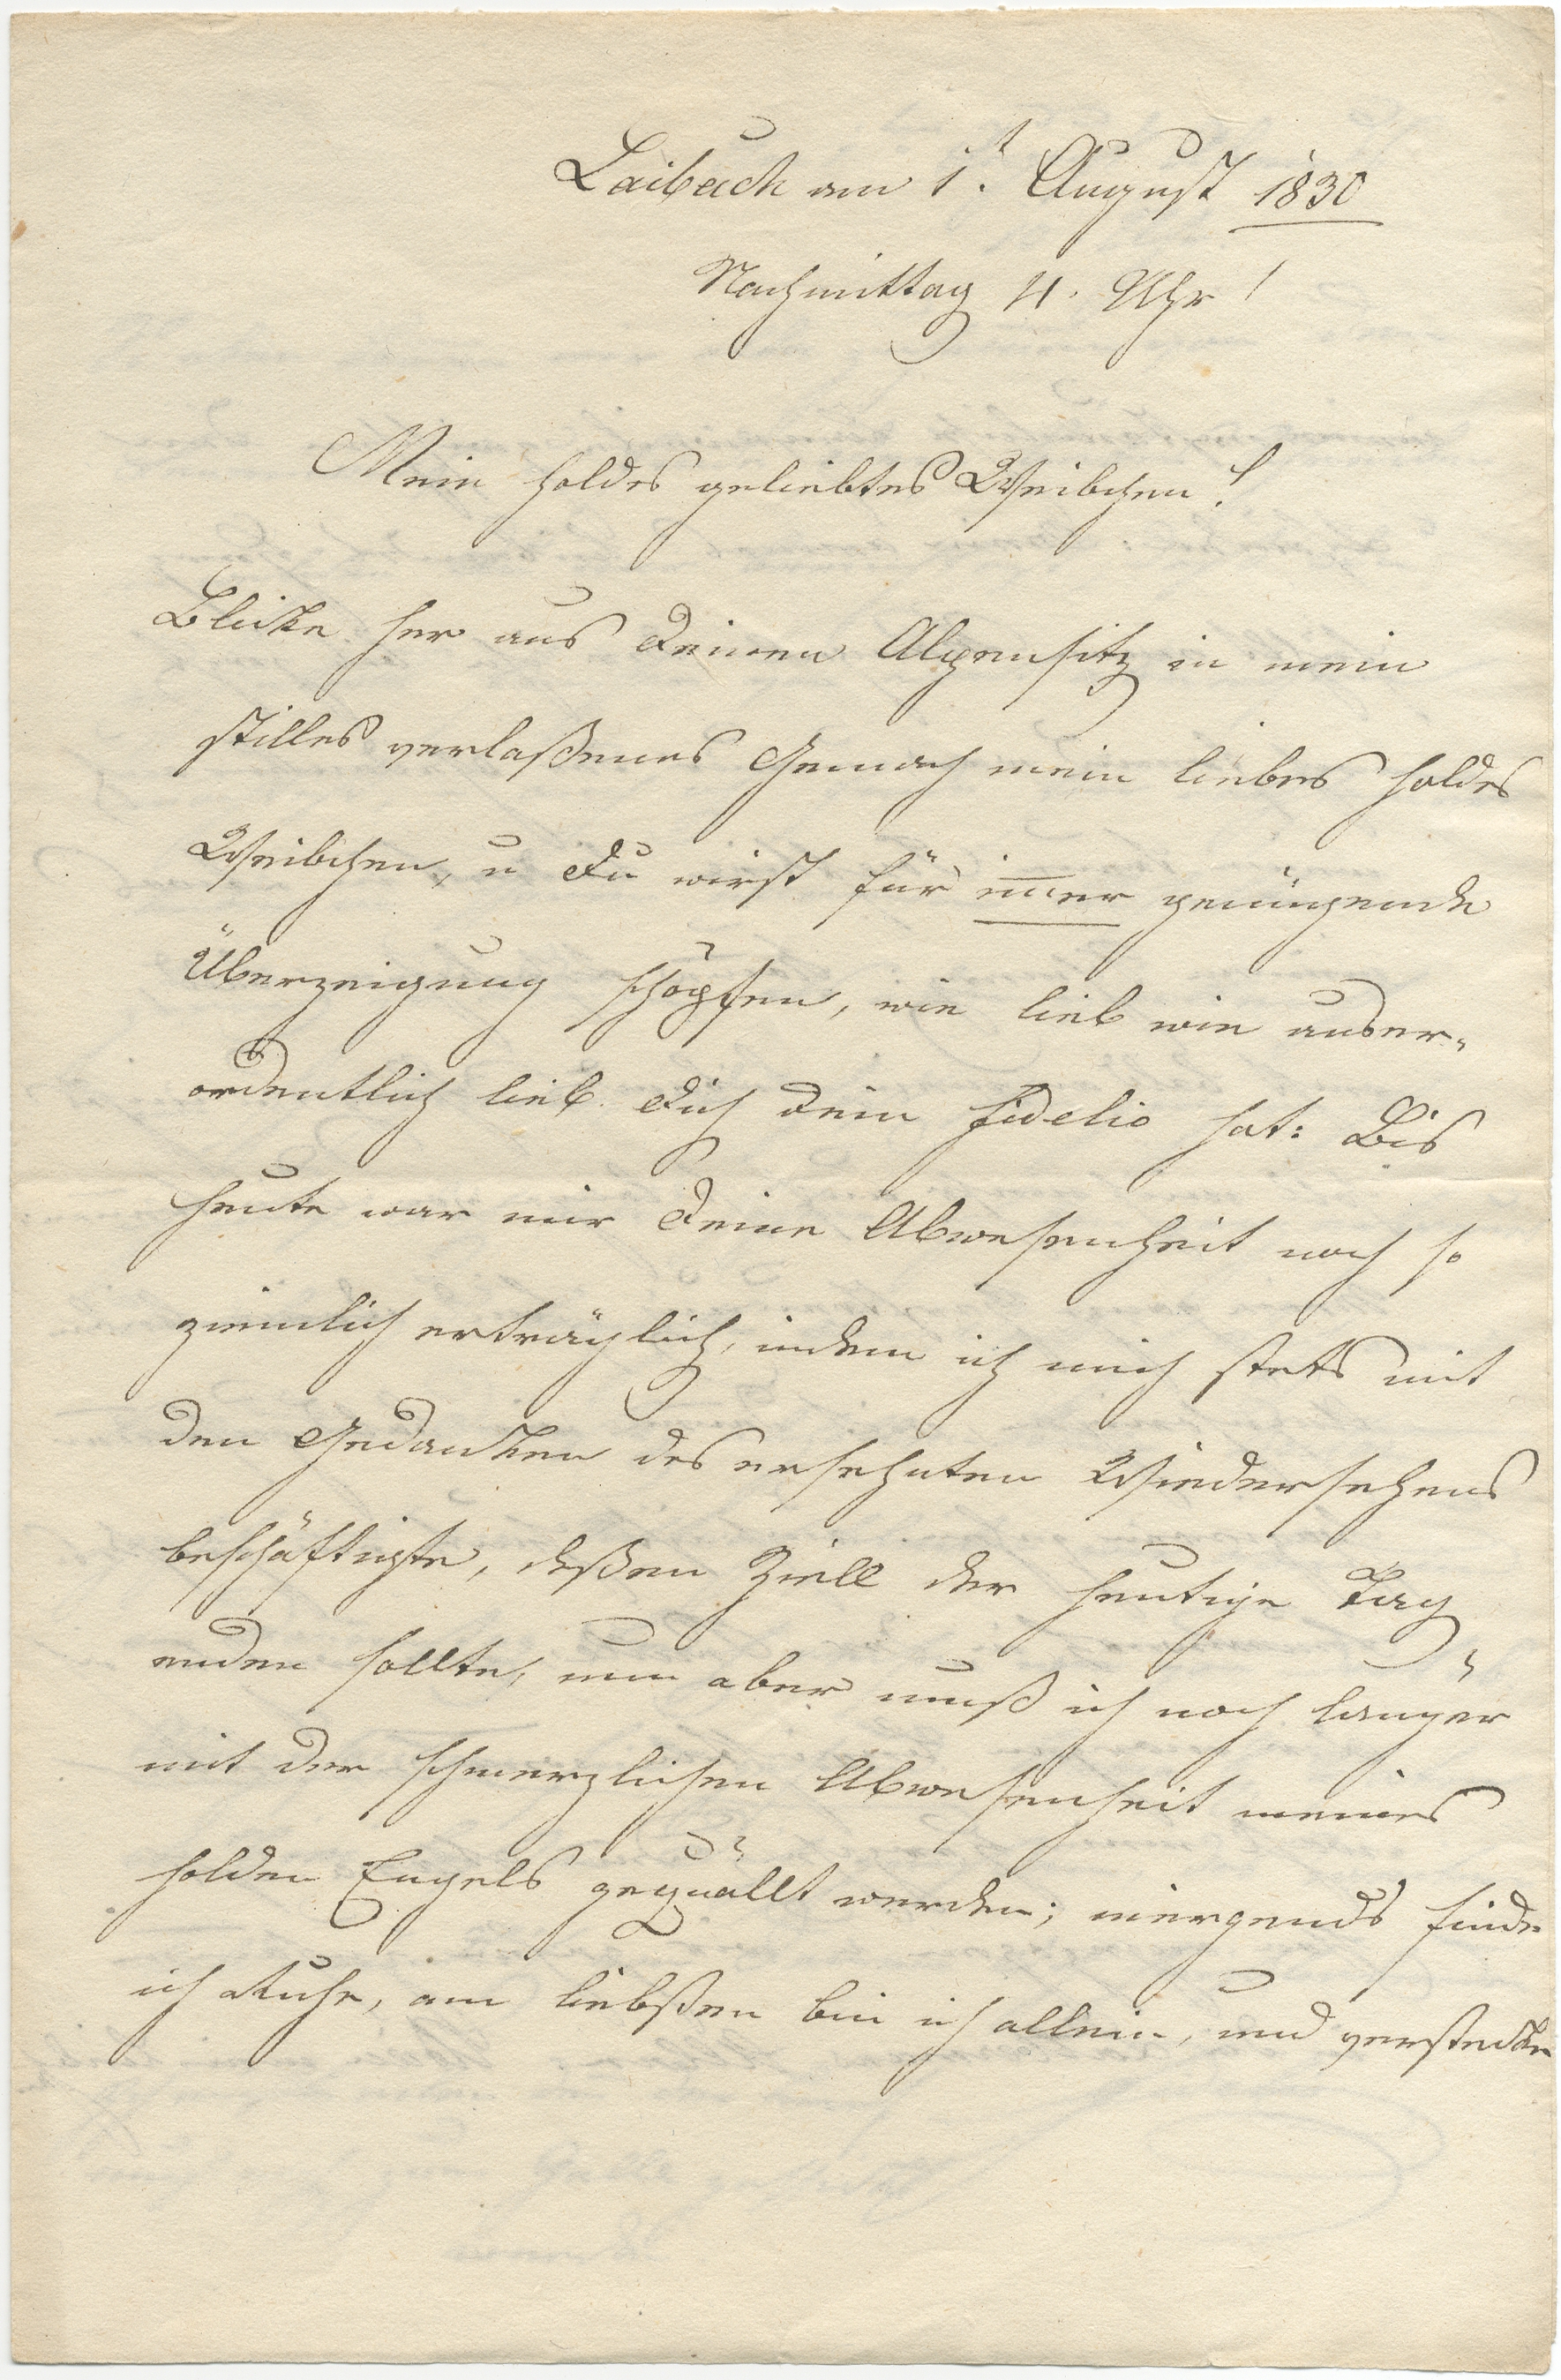 Laibach am 1t. August 1830
Nachmittag 4. Uhr!
Mein holdes geliebtes Weibchen!
Blicke her aus deinen Alpensitz in mein
stilles verlaßenes Gemach mein liebes holdes
Weibchen, u Du wirst für im̅er genügende
Überzeigung schöpfen, wie lieb wie auser-
ordentlich lieb Dich dein Fidelio hat: Bis
heute war mir deine Abwesenheit noch so
ziemlich erträglich, indem ich mich stets mit
den Gedanken des ersehnten Wiedersehens
beschäftigte, deßen Ziell der heutige Tag
enden sollte, nun aber muß ich noch länger
mit der schmerzlichen Abwesenheit meines
holden Engels gequällt werden; niergends finde
ich Ruhe, am liebßten bin ich allein, und verstecke